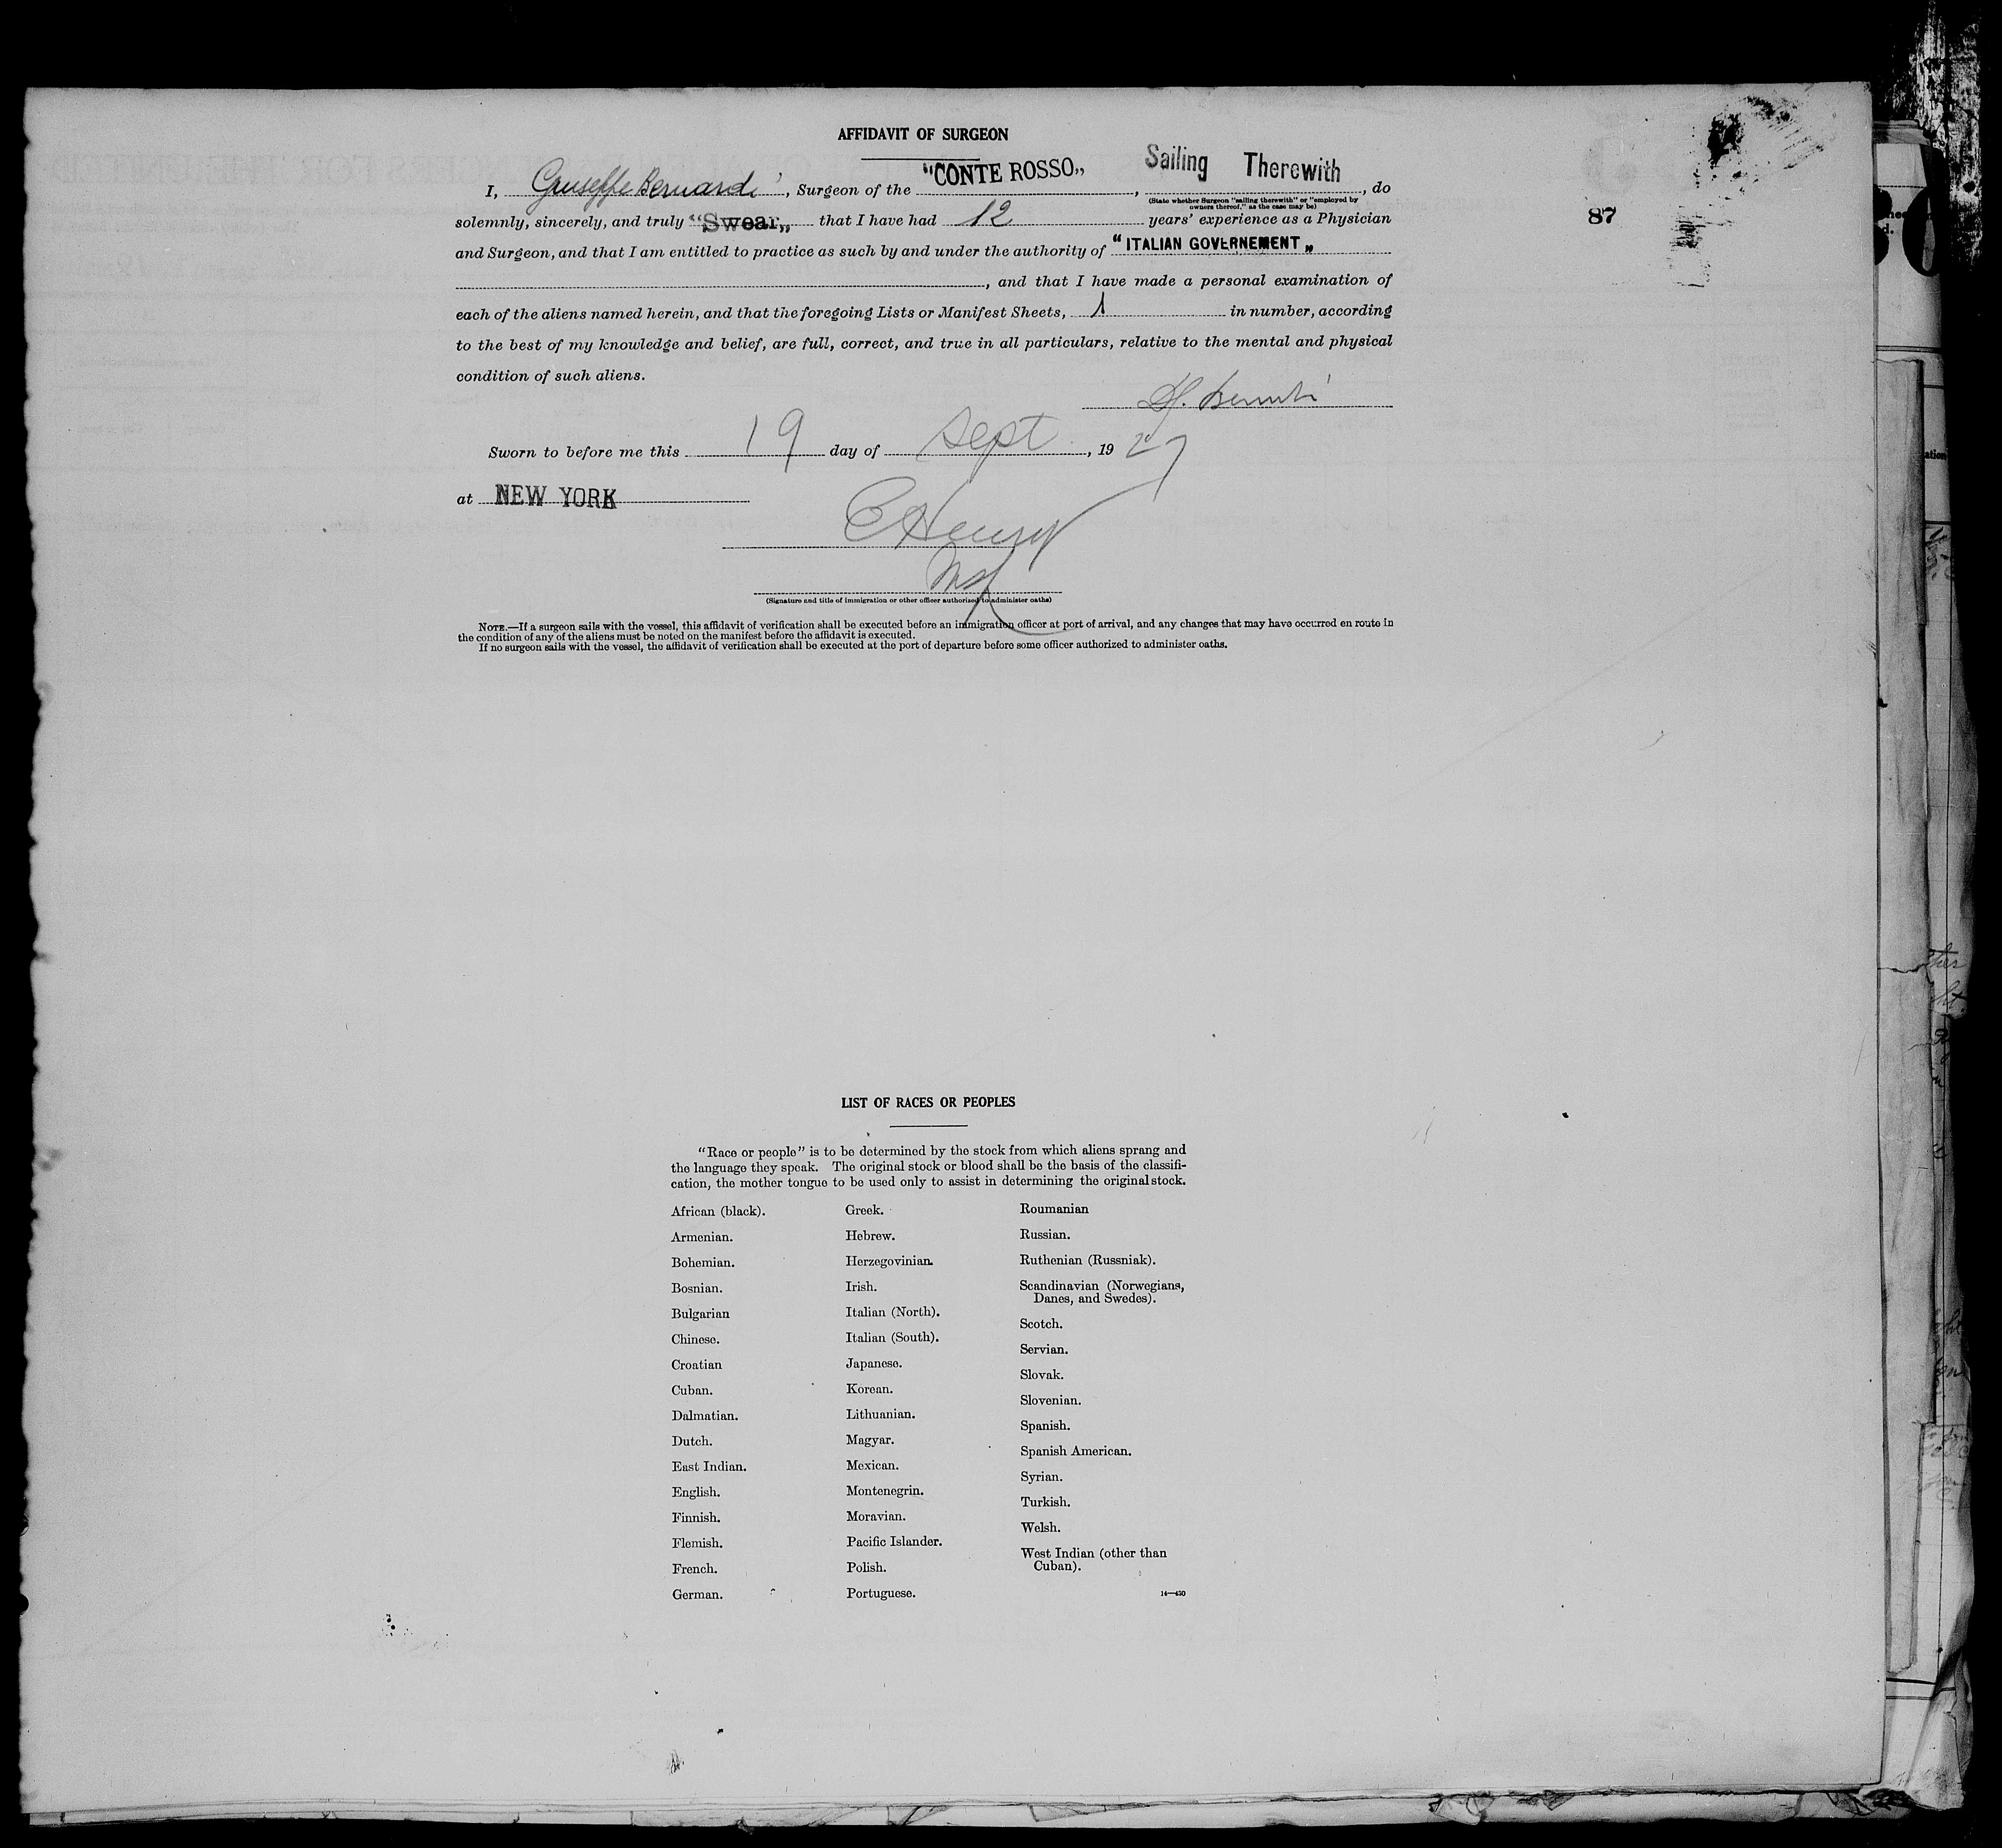 AFFIDAVIT OF SURGEON
I, Giuseppe Bernardi, Surgeon of the "CONTE ROSSO„, Sailing Therewith, do
(State whether Surgeon "sailing therewith" or "employed by
owners thereof," as the case may be)
solemnly, sincerely, and truly "Swear„ that I have had 12 years' experience as a Physician
87
and Surgeon, and that I am entitled to practice as such by and under the authority of "ITALIAN GOVERNEMENT„
, and that I have made a personal examination of
each of the aliens named herein, and that the foregoing Lists or Manifest Sheets, 1 in number, according
to the best of my knowledge and belief, are full, correct, and true in all particulars, relative to the mental and physical
condition of such aliens.
Sworn to before me this 19 day of Sept, 1927
at NEW YORK
C Henry
(Signature and title of immigration or other officer authorized to administer oaths)
NOTE.—If a surgeon sails with the vessel, this affidavit of verification shall be executed before an immigration officer at port of arrival, and any changes that may have occurred en route in
the condition of any of the aliens must be noted on the manifest before the affidavit is executed.
If no surgeon sails with the vessel, the affidavit of verification shall be executed at the port of departure before some officer authorized to administer oaths.
LIST OF RACES OR PEOPLES
"Race or people" is to be determined by the stock from which aliens sprang and
the language they speak. The original stock or blood shall be the basis of the classifi-
cation, the mother tongue to be used only to assist in determining the original stock.
African (black).
Armenian.
Bohemian.
Bosnian.
Bulgarian
Chinese.
Croatian
Cuban.
Dalmatian.
Dutch.
East Indian.
English.
Finnish.
Flemish.
French.
German.
Greek.
Hebrew.
Herzegovinian.
Irish.
Italian (North).
Italian (South).
Japanese.
Korean.
Lithuanian.
Magyar.
Mexican.
Montenegrin.
Moravian.
Pacific Islander.
Polish.
Portuguese.
Roumanian
Russian.
Ruthenian (Russniak).
Scandinavian (Norwegians,
Danes, and Swedes).
Scotch.
Servian.
Slovak.
Slovenian.
Spanish.
Spanish American.
Syrian.
Turkish.
Welsh.
West Indian (other than
Cuban).
14—430